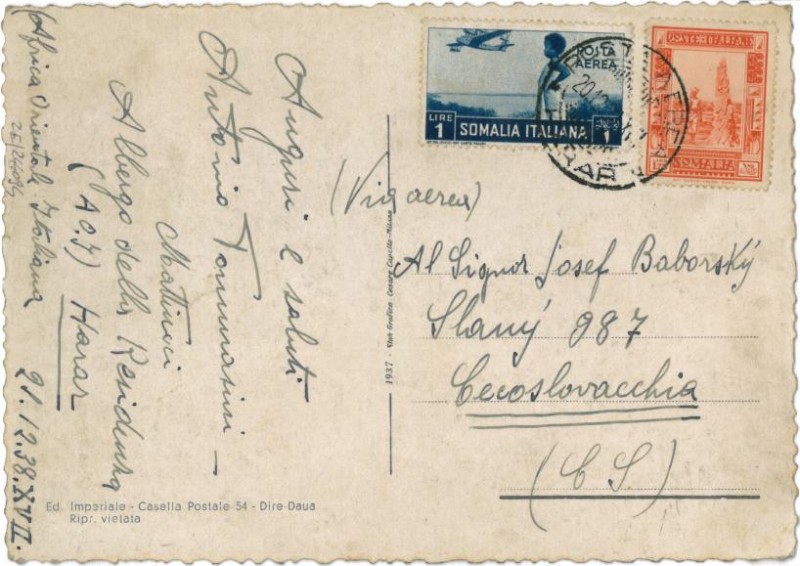 Auguri e saluti
Antonio Tommasini —
Mattinoi
Albergo della Residenza
(A O I) Harar
(Africa Orientale Italiana 21.12.38.XVII.
POSTA
AEREA
LIRE
1
SOMALIA ITALIANA
1
POSTE ITALIANE
SOMALIA
HARAR
20.12
(Via aerea)
Al Signor Josef Baborský
Slaný 987
Cecoslovacchia
(C S)
1937 - Stab. Grafico Cesare Capello - Milano
Ed. Imperiale - Casella Postale 54 - Dire-Daua
Ripr. vietata